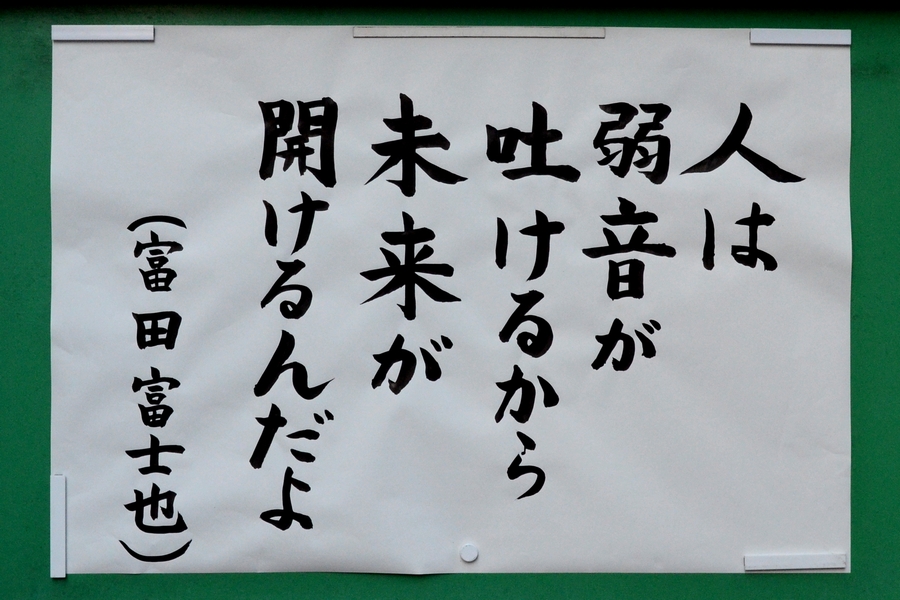 人は
弱音が
吐けるから
未来が
開けるんだよ
（富田富士也）